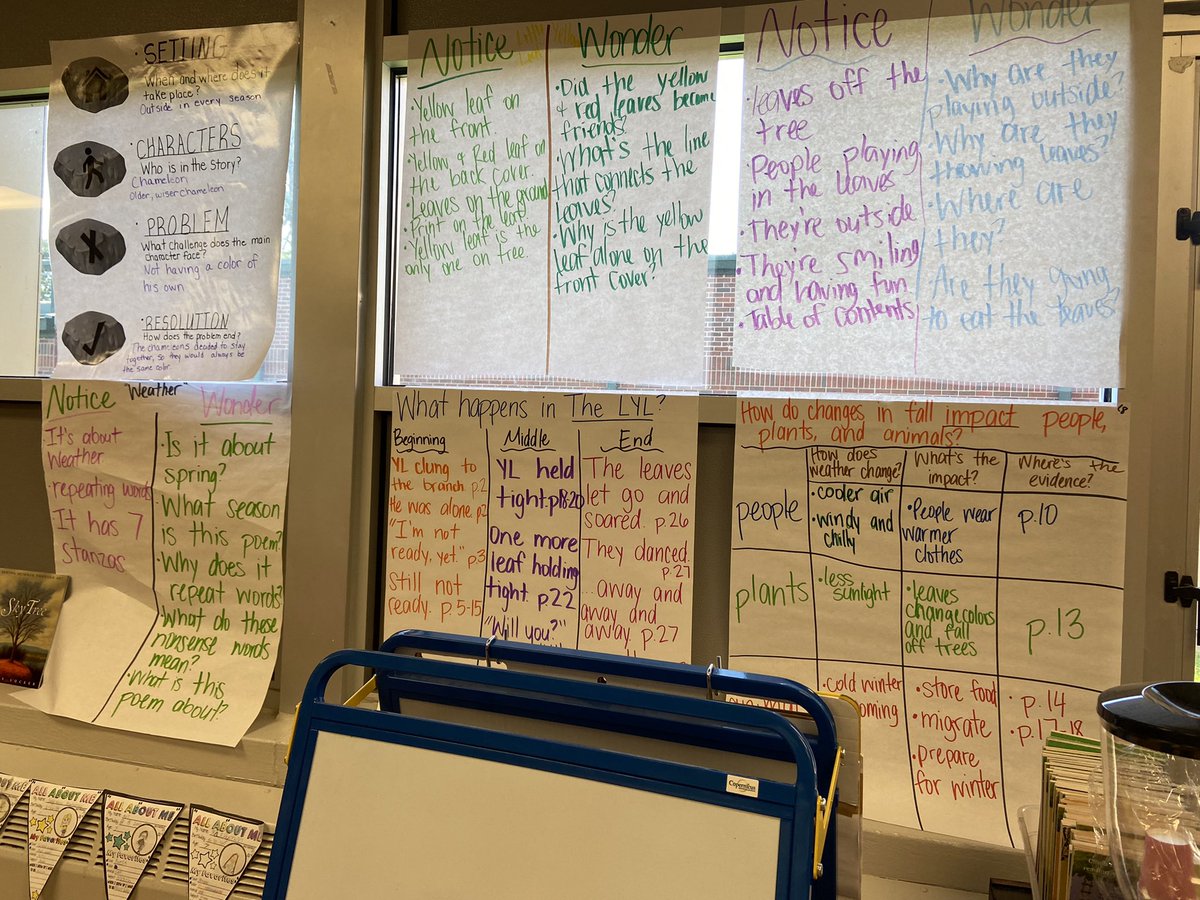 SETTING
When and where does it
take place?
Outside in every season
CHARACTERS
Who is in the Story?
Chameleon
Older, wiser Chameleon
PROBLEM
What challenge does the main
character face?
Not having a color of
his own
RESOLUTION
How does the problem end?
The chameleons decided to stay
together, so they would always be
the same color.
Notice
• Yellow leaf on
the front.
• Yellow & Red leaf on
the back cover
• Leaves on the ground
• Print on the leaf
• Yellow leaf is the
only one on tree.
Wonder
• Did the yellow
& red leaves become
friends?
• What's the line
that connects the
leaves?
• Why is the yellow
leaf alone on the
front cover?
Notice
• leaves off the
tree
• People playing
in the leaves
• They're outside
• They're smiling
and having fun
• Table of contents
Wonder
• Why are they
playing outside?
• Why are they
throwing leaves?
• Where are
they?
• Are they going
to eat the leaves?
"Weather"
Notice
• It's about
Weather
• repeating words
• It has 7
stanzas
Wonder
• Is it about
spring?
• What season
is this poem?
• Why does it
repeat words?
• What do these
nonsense words
mean?
• What is this
poem about?
What happens in The LYL?
Beginning
YL clung to
the branch p.2
He was alone p.2
"I'm not
ready, yet." p.3
still not
ready. p. 5-15
Middle
YL held
tight p.18-20
One more
leaf holding
tight. p.22
"Will you?"
End
The leaves
let go and
soared. p.26
They danced.
p.27
...away and
away and
away. p.27
How do changes in fall impact people,
plants, and animals?
How does
weather change?
What's the
impact?
Where's the
evidence?
people
• cooler air
• windy and
chilly
• People wear
warmer
clothes
p.10
plants
• less
sunlight
• leaves
change colors
and fall
off trees
p.13
• cold winter
coming
• store food
• migrate
• prepare
for winter
p.14
p.17-18
Sky Tree
ALL ABOUT ME
My Favorites
ALL ABOUT ME
My Favorites
ALL ABOUT ME
My Favorites
Copernicus